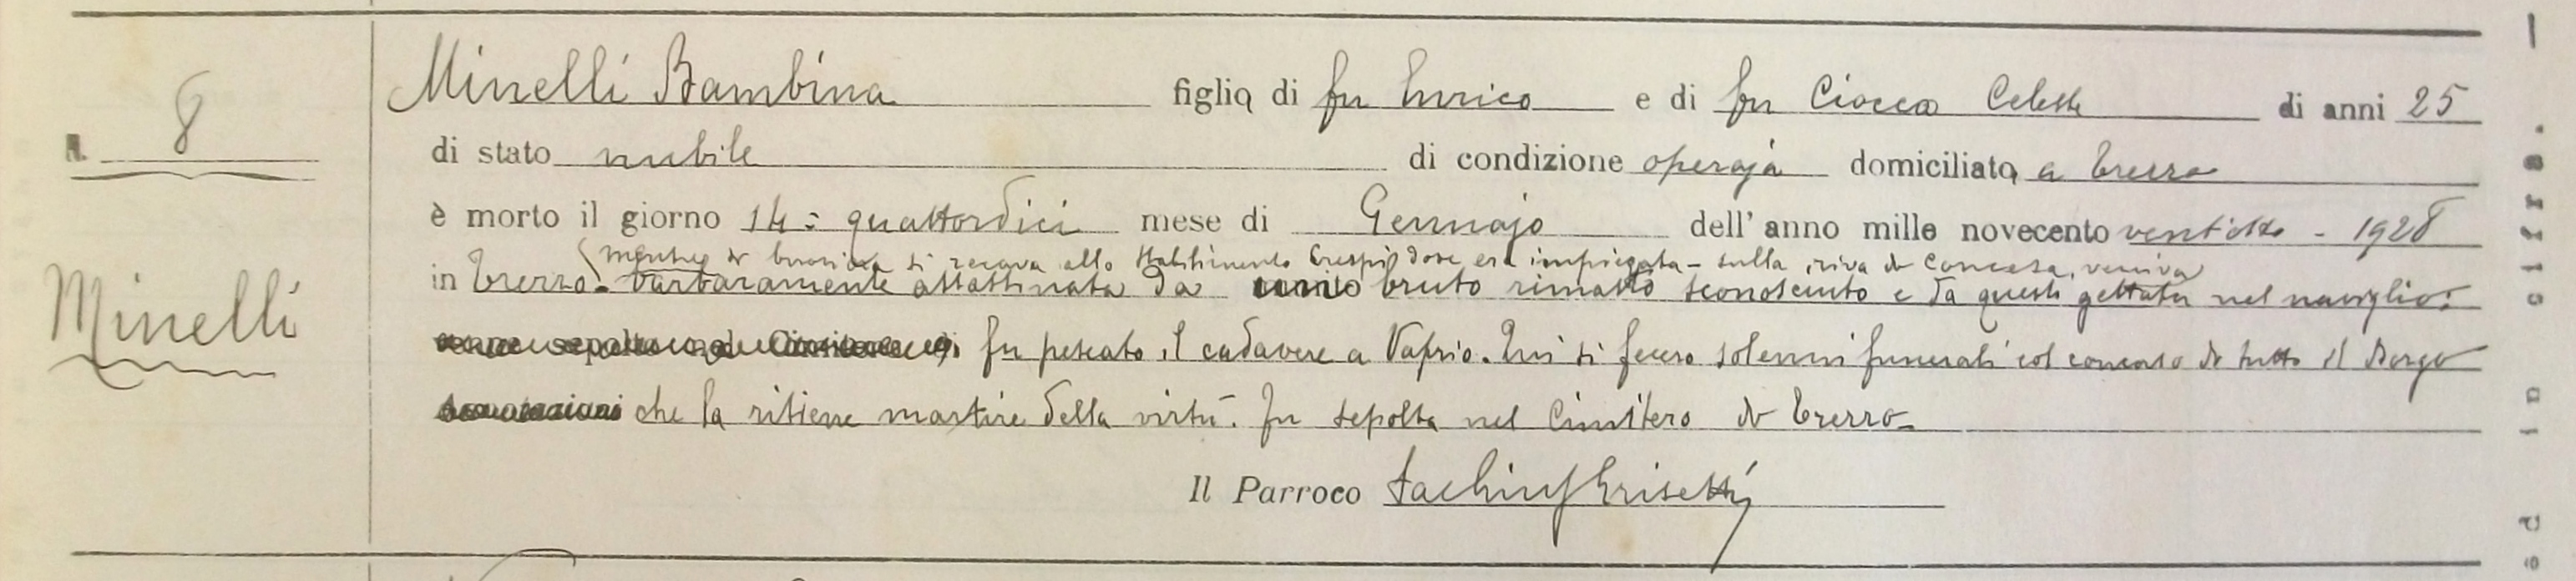 N. 8
Minelli
Minelli Bambina figlia di fu Enrico e di fu Ciocca Celeste di anni 25
di stato nubile di condizione operaja domiciliata a Trezzo
è morto il giorno 14 = quattordici mese di Gennajo dell'anno mille novecento ventotto - 1928
(mentre di buon'ora si recava allo Stabilimento Crespi dove era impiegata - sulla riva di Concesa, veniva
in Trezzo. barbaramente assassinata da bruto rimasto sconosciuto e da questi gettata nel naviglio.
fu pescato il cadavere a Vaprio. Qui si fecero solenni funerali col concorso di tutto il Borgo
che la ritiene martire della virtù. Fu sepolta nel Cimitero di Trezzo.
Il Parroco Grisetti